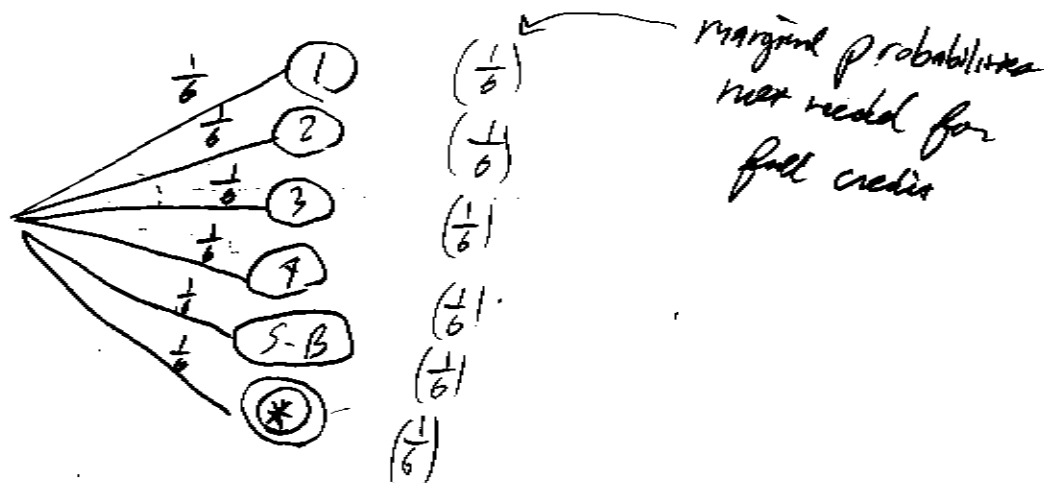 1/6 1 (1/6)
1/6 2 (1/6)
1/6 3 (1/6)
1/6 4 (1/6)
1/6 S-B (1/6)
1/6 * (1/6)
marginal probabilities
not needed for
full credit